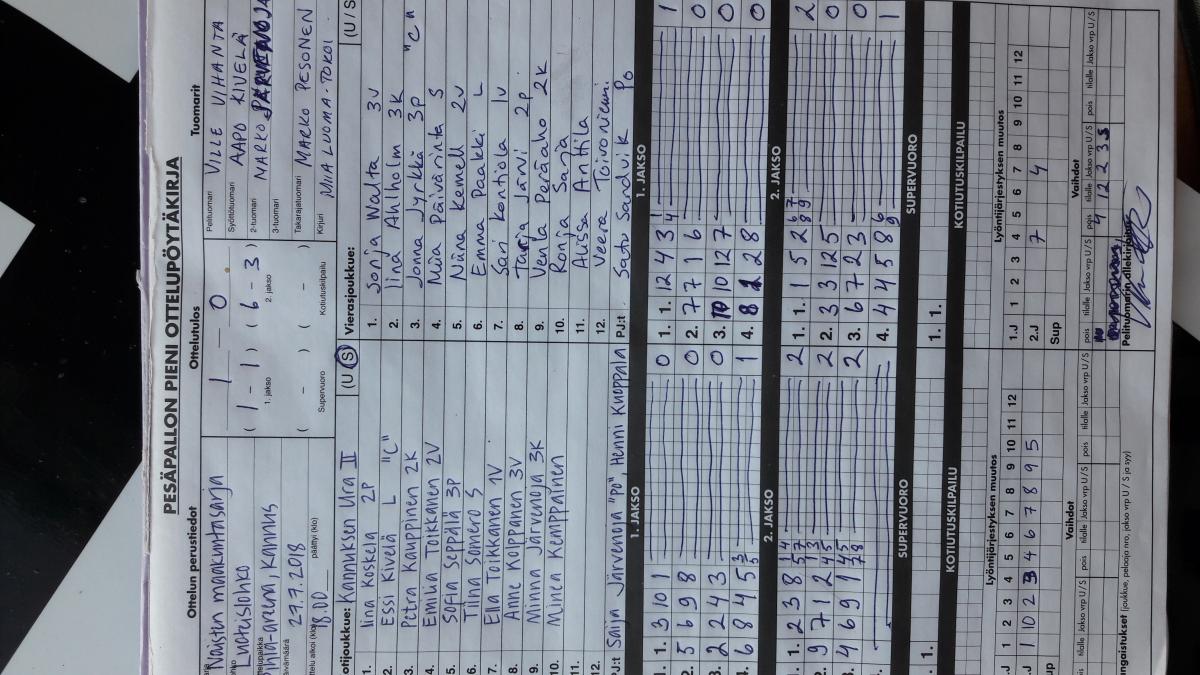 PESÄPALLON PIENI OTTELUPÖYTÄKIRJA
Ottelun perustiedot
Naisten maakuntasarja
Luoteislohko
-areena, Kannus
27.7.2018
18.00
päättyi (klo)
Ottelutulos
1 — 0
( 1 - 1 ) ( 6 - 3 )
1. jakso 2. jakso
( - ) ( - )
Supervuoro Kotiutuskilpailu
Tuomarit
Pelituomari VILLE VIHANTA
Syöttötuomari AAPO KIVELÄ
2-tuomari MARKO
3-tuomari
Takarajatuomari MARKO PESONEN
Kirjuri MIIA LUOMA-TOKOI
otijoukkue: Kannuksen Ura II (U S)
1. Iina Koskela 2P
2. Essi Kivelä L "C"
3. Petra Kauppinen 2K
4. Emilia Toikkanen 2V
5. Sofia Seppälä 3P
6. Tiina Somero S
7. Ella Toikkanen 1V
8. Anne Koippanen 3V
9. Minna Järvenoja 3K
10. Minea Kemppainen
11.
12.
PJ:t Saija Järvenoja "PO", Henni Kuoppala
Vierasjoukkue: (U / S
1. Sonja Walta 3V
2. Iina Ahlholm 3K
3. Jonna Jyrkkä 3P "C"
4. Miia Päivärinta S
5. Niina Kamell 2V
6. Emma Paakki L
7. Sari Kontiola 1V
8. Tarja Järvi 2P
9. Venla Peräaho 2K
10. Ronja Sarja
11. Alissa Anttila
12. Veera Toivioniemi
PJ:t Satu Sandvik PO
1. JAKSO
1. 1. 3 10 1 0
2. 5 6 9 8 0
3. 2 2 4 3 0
4. 6 8 4 5 1
1. JAKSO
1. 1. 12 4 3 1
2. 7 7 1 6 0
3. 10 10 12 7 0
4. 8 2 8 0
2. JAKSO
1. 1. 2 3 8 2
2. 9 7 1 2 2
3. 4 6 9 1 2
2. JAKSO
1. 1. 1 5 2 2
2. 3 3 12 5 0
3. 6 7 2 3 0
4. 4 4 5 8 1
SUPERVUORO
1. 1.
SUPERVUORO
1. 1.
KOTIUTUSKILPAILU
KOTIUTUSKILPAILU
Lyöntijärjestyksen muutos
.J 1 2 3 4 5 6 7 8 9 10 11 12
.J 1 10 2 3 4 6 7 8 9 5
up
Lyöntijärjestyksen muutos
1.J 1 2 3 4 5 6 7 8 9 10 11 12
2.J 7 4
Sup
Vaihdot
pois tilalle Jakso vrp U / S pois tilalle Jakso vrp U / S
Vaihdot
pois tilalle Jakso vrp U / S pois tilalle Jakso vrp U / S pois tilalle Jakso vrp U / S
4 12 2 3 S
angaistukset (joukkue, pelaaja nro, jakso vrp U / S ja syy)
Pelituomarin allekirjoitus